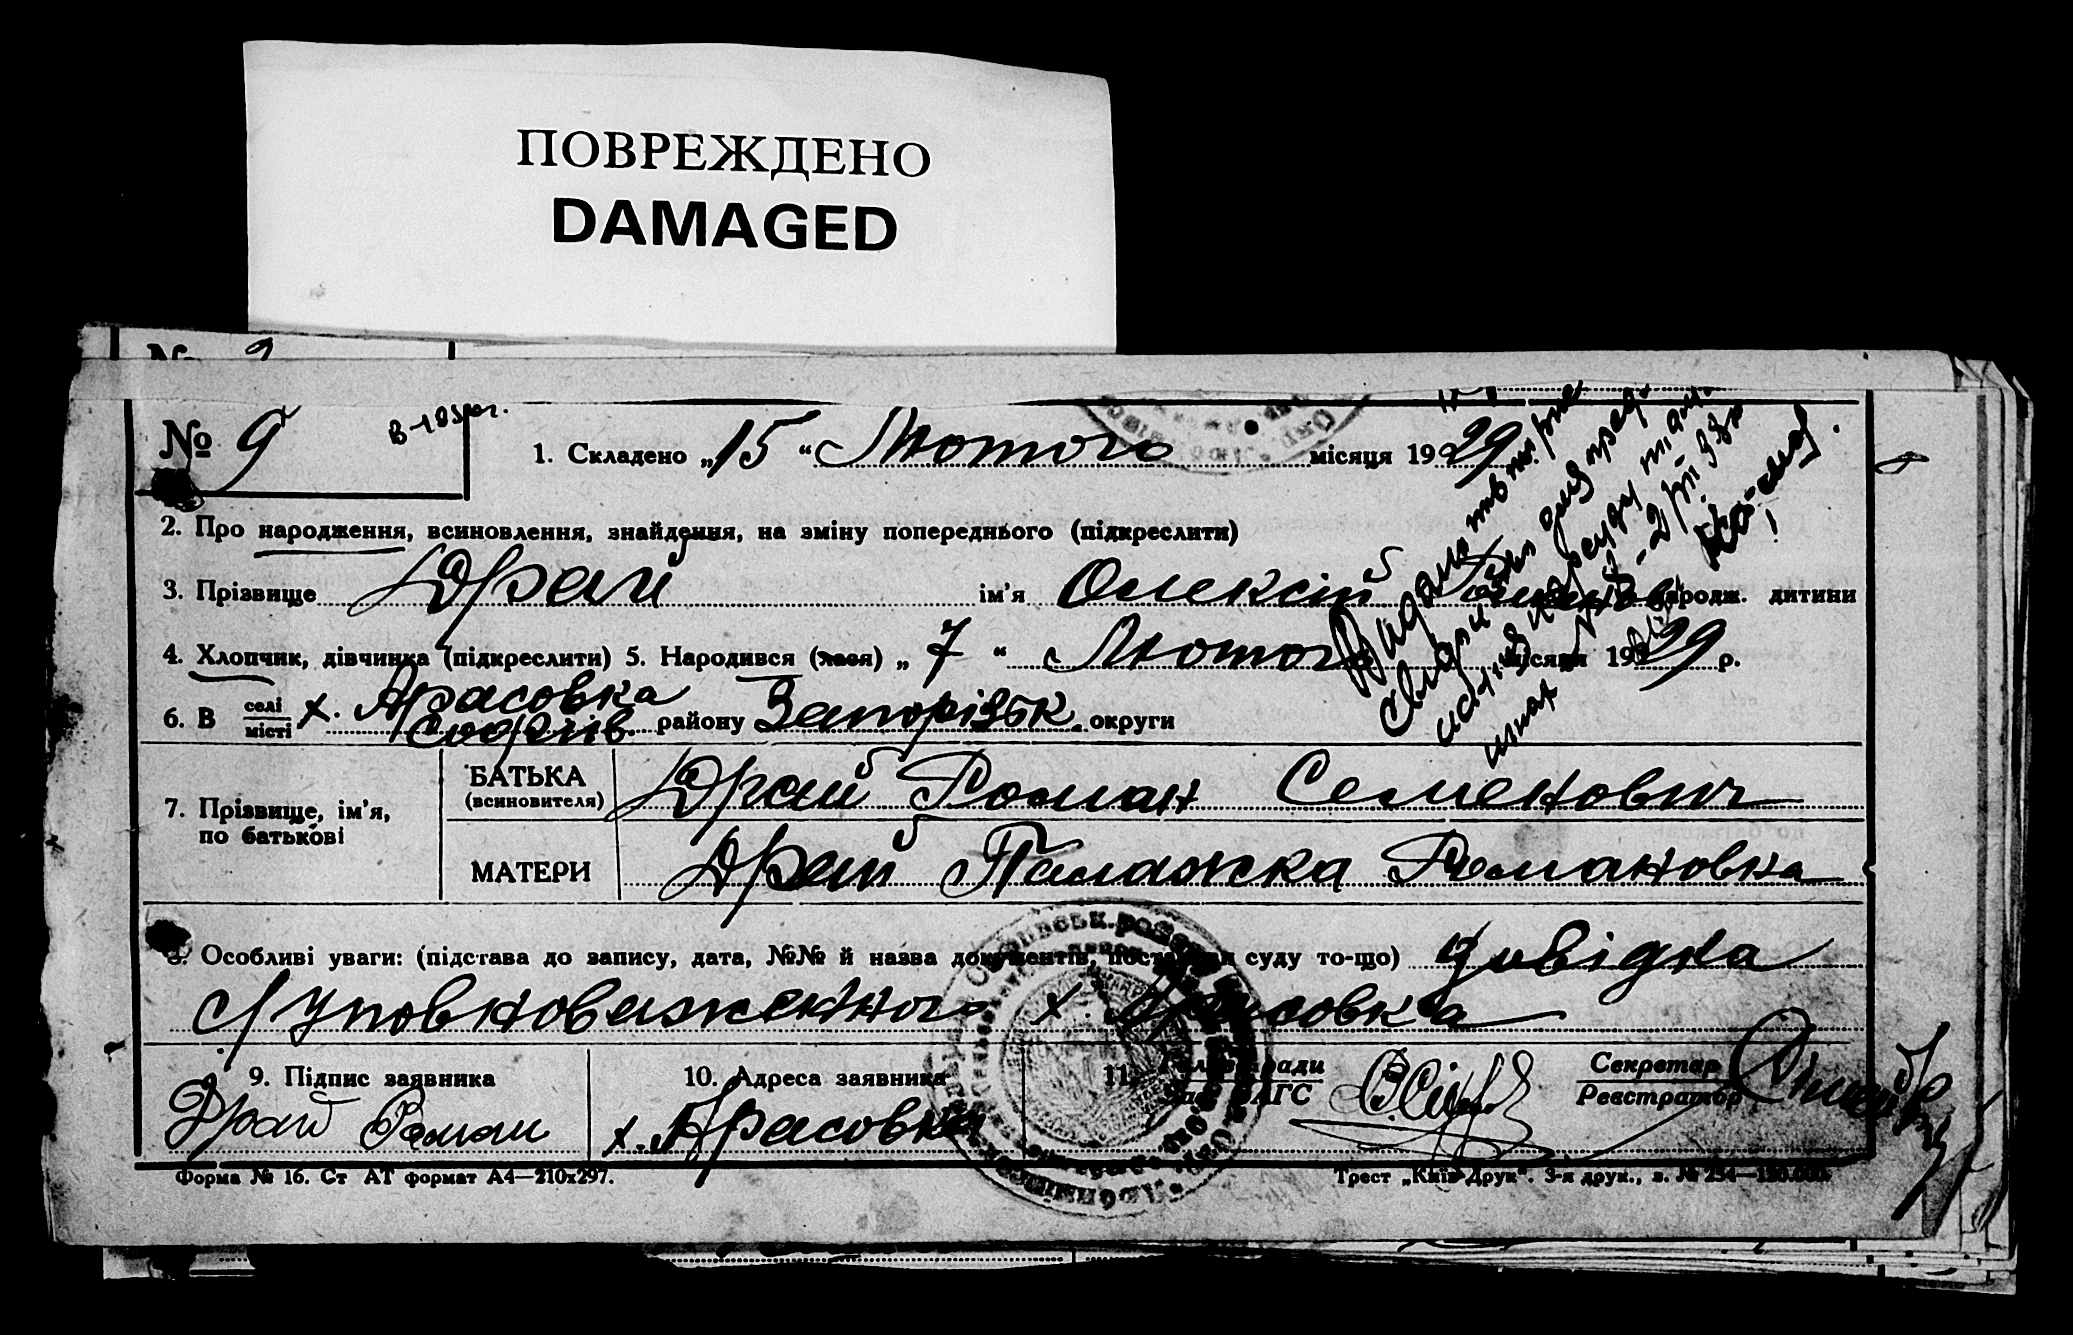 ПОВРЕЖДЕНО
DAMAGED
№ 9
№ 9 В-1935г.
1. Складено „15“ Лютого місяця 1929
2. Про народження, всиновлення, знайдення, на зміну попереднього (підкреслити)
3. Прізвище Драй ім'я Олексій народж. дитини
4. Хлопчик, дівчинка (підкреслити) 5. Народився (лася) „7“ Лютого місяця 1929 р.
6. В селі/місті х. Красовка Софіїв. району Запорізьк. округи
7. Прізвище, ім'я, по батькові
БАТЬКА (всиновителя) Драй Роман Семенович
МАТЕРИ Драй Палажка Романовна
8. Особливі уваги: (підстава до запису, дата, №№ й назва документів, постанови суду то-що) довідка
Уповноваженного х. Красовка
9. Підпис заявника 10. Адреса заявника 11. Голов. ради/Зав. ЗАГС Секретар/Реєстратор
Драй Роман х. Красовка
Форма № 16. Ст АТ формат А4—210х297. Трест „Київ-Друк“. 3-я друк., з. № 254—150.000.